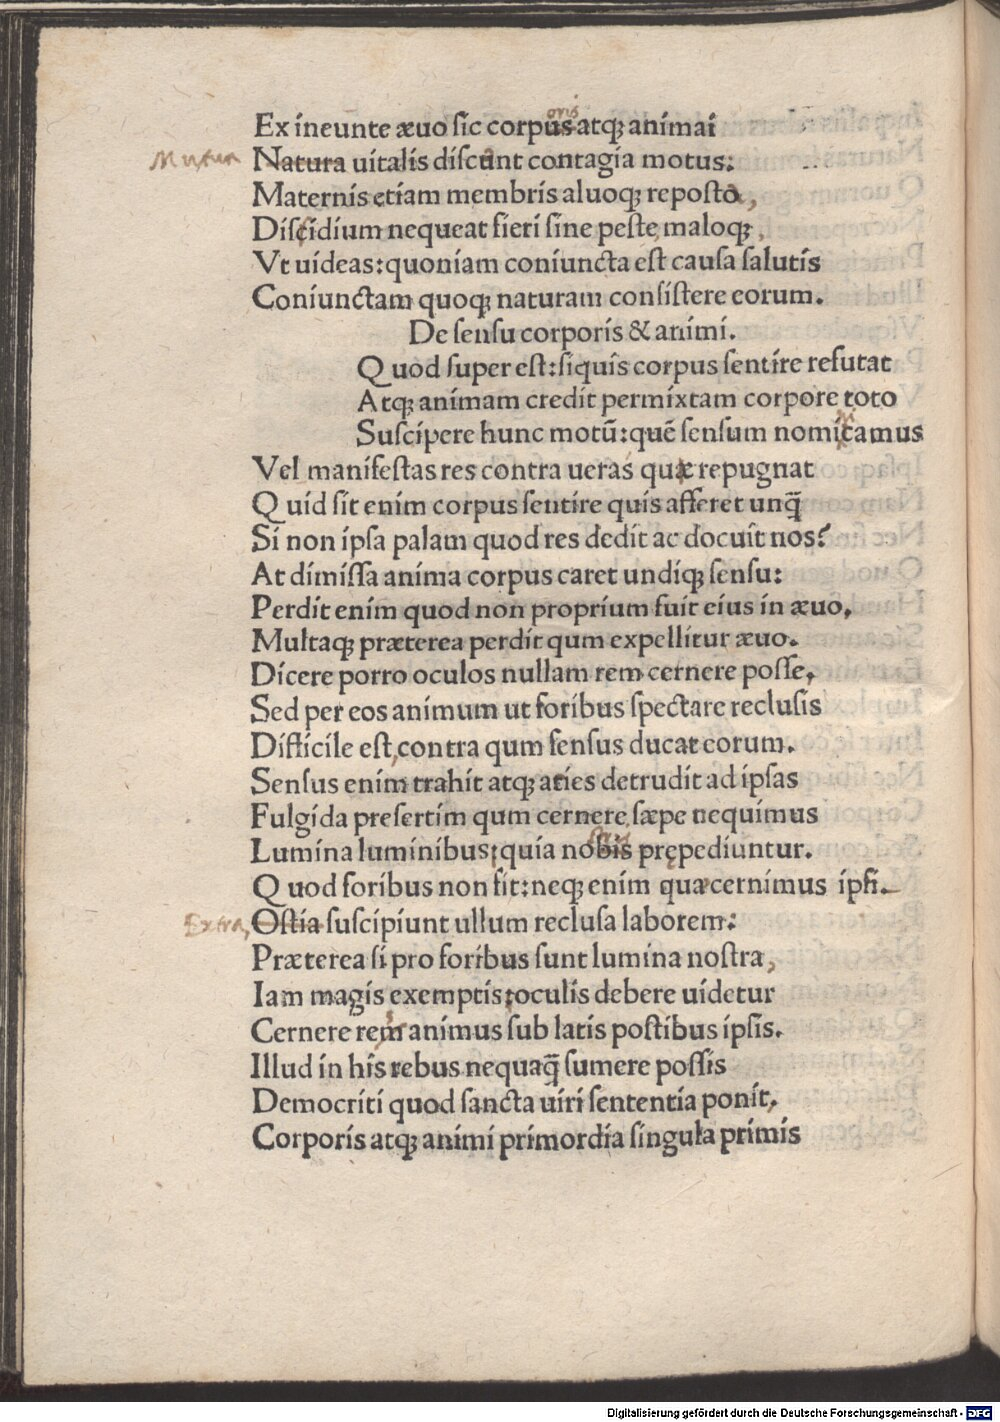 oris
Ex ineunte æuo sic corpus atq; animai
Mutua
Natura uitalis discunt contagia motus:
Maternis etiam membris aluoq; reposto,
Discidium nequeat fieri sine peste maloq;
Vt uideas: quoniam coniuncta est causa salutis
Coniunctam quoq; naturam consistere eorum.
De sensu corporis & animi.
Quod super est: siquis corpus sentire refutat
Atq; animam credit permixtam corpore toto
Suscipere hunc motū: quē sensum nomicamus
Vel manifestas res contra ueras quæ repugnat
Quid sit enim corpus sentire quis afferet unq̄
Si non ipsa palam quod res dedit ac docuit nos?
At dimissa anima corpus caret undiq; sensu:
Perdit enim quod non proprium fuit eius in æuo,
Multaq; præterea perdit qum expellitur æuo.
Dicere porro oculos nullam rem cernere posse,
Sed per eos animum ut foribus spectare reclusis
Difficile est, contra qum sensus ducat eorum.
Sensus enim trahit atq; aties detrudit ad ipsas
Fulgida presertim qum cernere sæpe nequimus
Lumina luminibus: quia nobis prępediuntur.
Quod foribus non fit: neq; enim qua cernimus ipsi.
Extra,
Ostia suscipiunt ullum reclusa laborem:
Præterea si pro foribus sunt lumina nostra,
Iam magis exemptis: oculis debere uidetur
Cernere rem animus sub latis postibus ipsis.
Illud in his rebus nequaq̄ sumere possis
Democriti quod sancta uiri sententia ponit,
Corporis atq; animi primordia singula primis
Digitalisierung gefördert durch die Deutsche Forschungsgemeinschaft - DFG